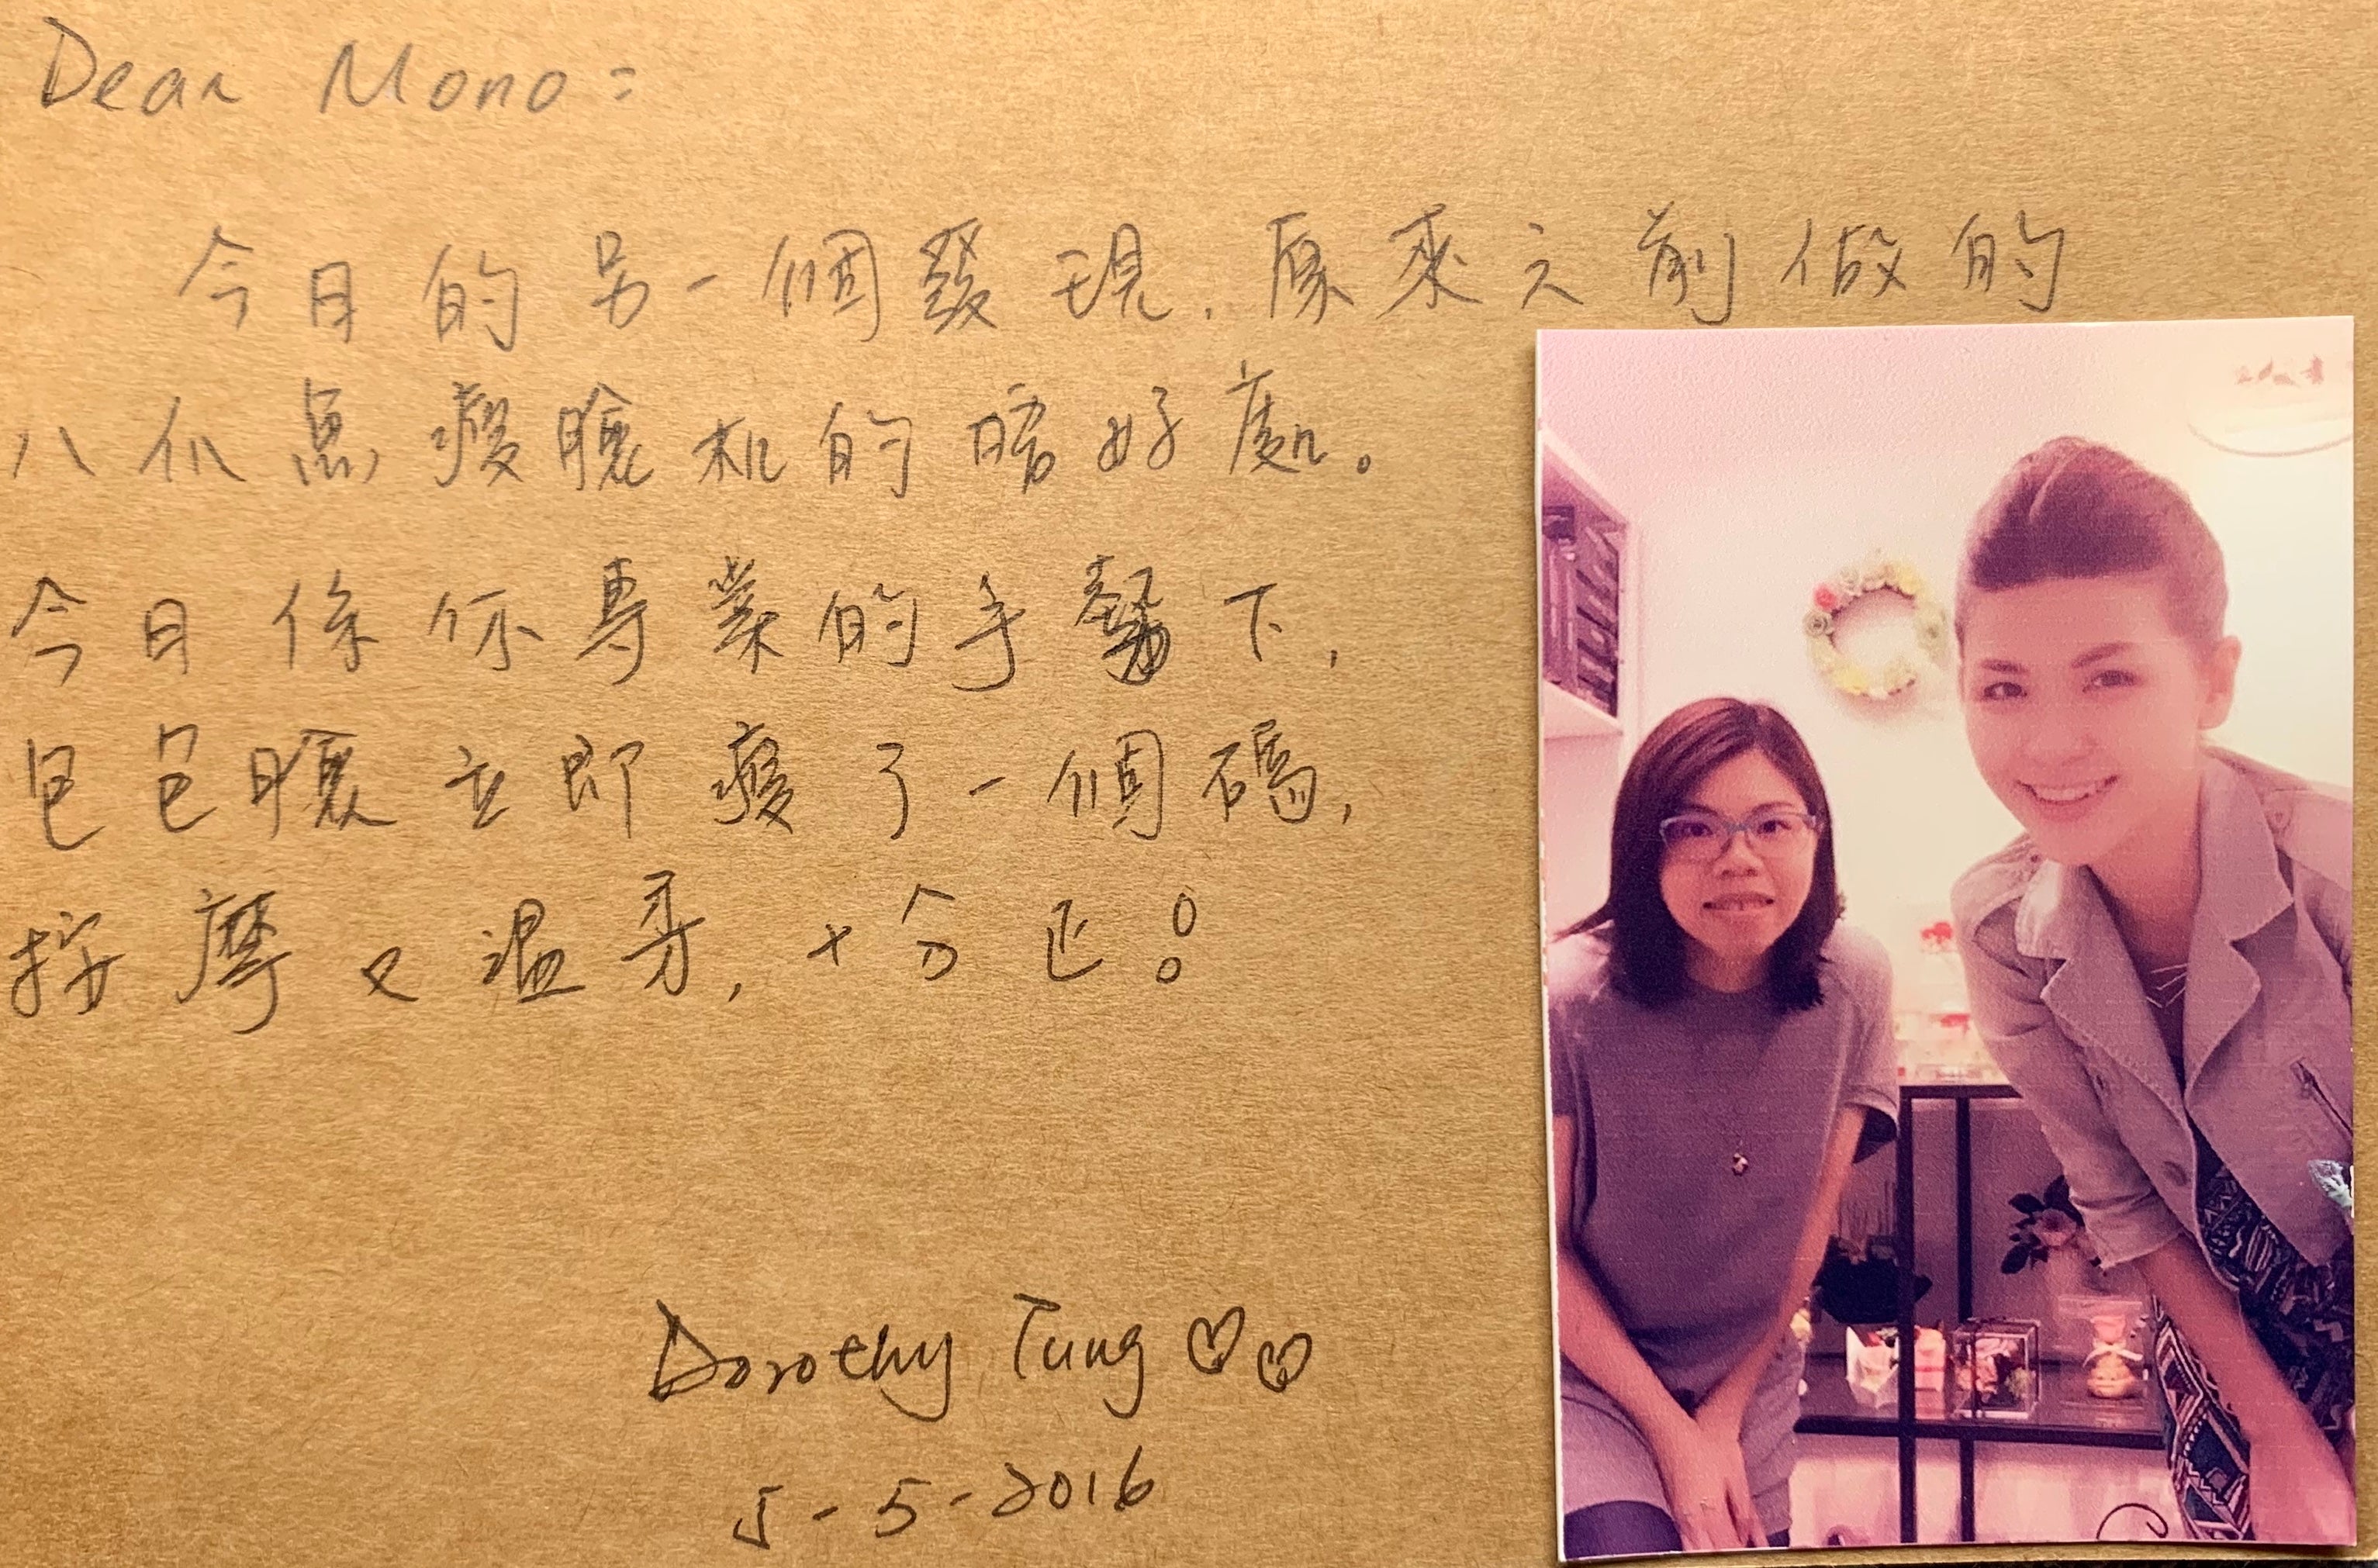 Dear Mono:
今日的另一個發現，原來之前做的
八爪魚瘦腰机的唔好處。
今日係你專業的手勢下，
包包腰立即瘦了一個碼，
按摩又溫柔，十分正！
Dorothy Tung ♡♡
5-5-2016